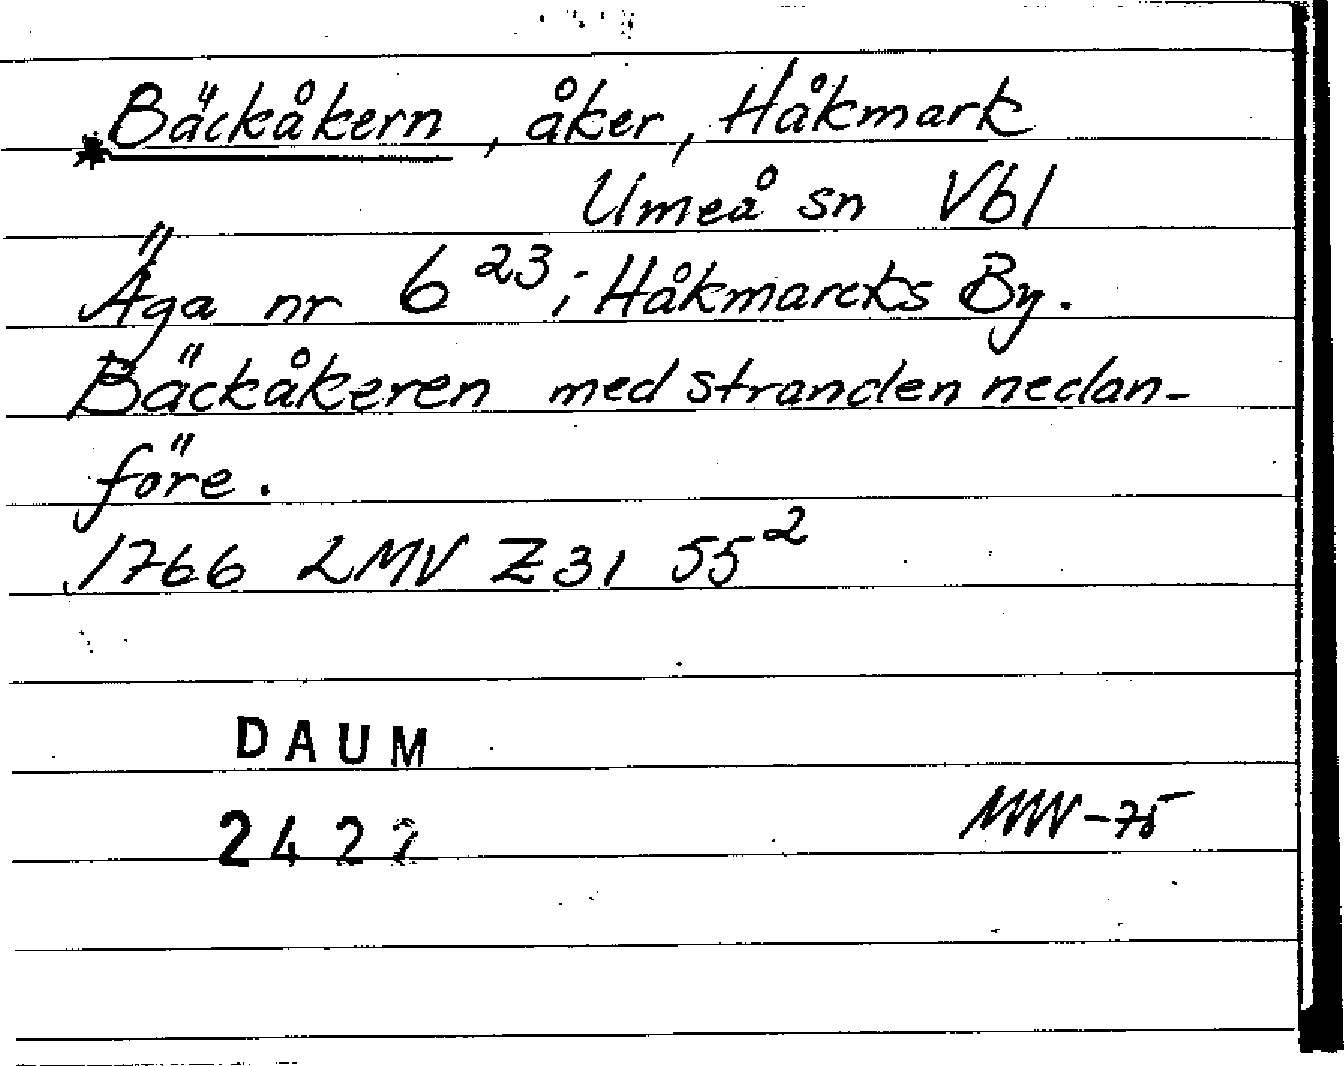 *Bäckåkern, åker, Håkmark
Umeå sn Vbl
Äga nr 6 23 i Håkmarcks By.
Bäckåkeren med stranden nedan-
före.
1766 LMV Z31 55 2
DAUM
242
-75